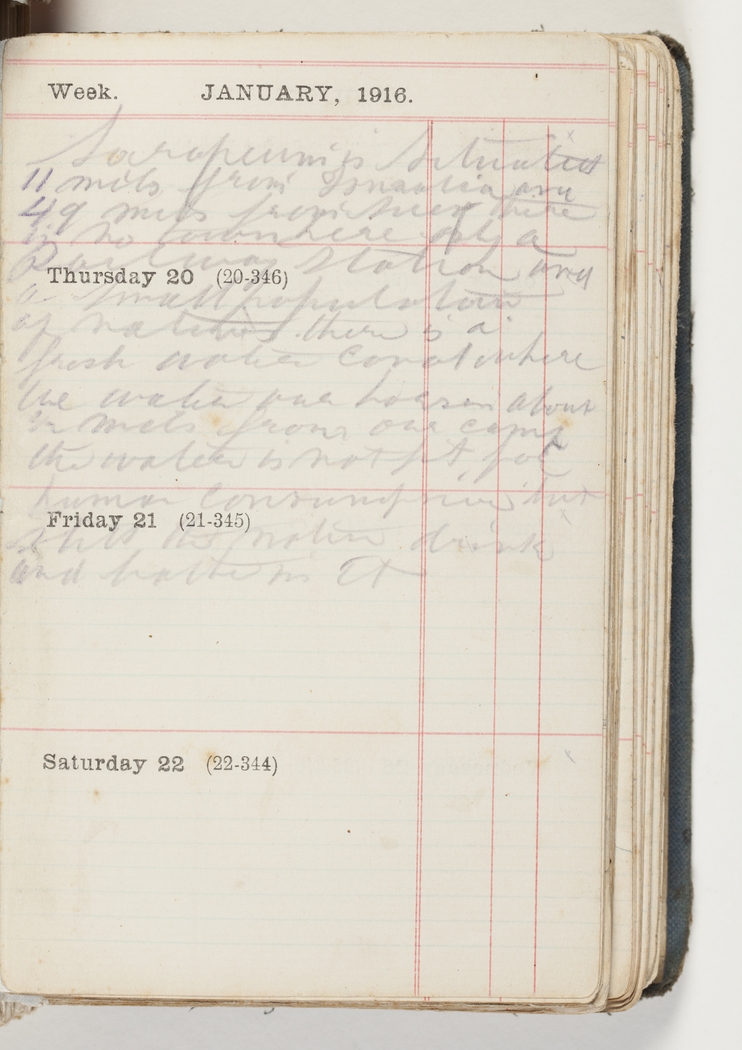 Week. JANUARY, 1916.
Sarapeum is situated
11 mils from Ismailia and
49 mils from Suez there
is no town here only a
Railway Station and
Thursday 20 (20-346)
a small population
of natives. there is a
fresh water Canal where
we water our horses about
mils from our camp
the water is not fit for
human consumption but
Friday 21 (21-345)
still the natives drink
and bathe in it
Saturday 22 (22-344)